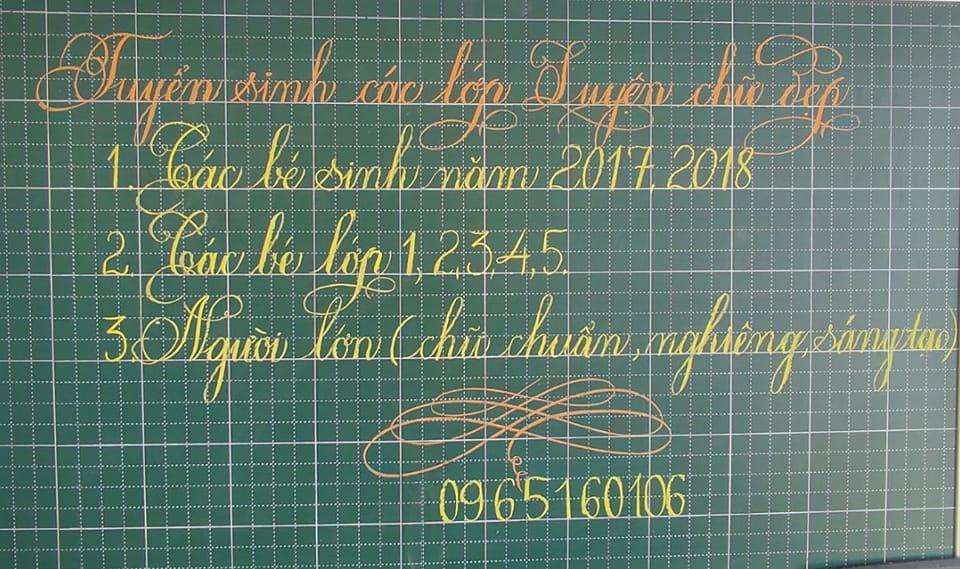 Tuyển sinh các lớp Luyện chữ đẹp
1. Các bé sinh năm 2017, 2018
2. Các bé lớp 1, 2, 3, 4, 5.
3. Người lớn (chữ chuẩn, nghiêng, sáng tạo)
0965160106